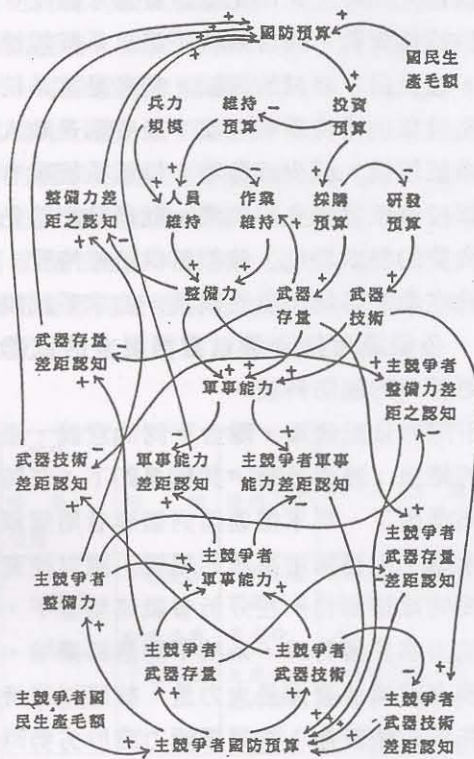 國防預算
國民生
產毛額
兵力
規模
維持
預算
投資
預算
整備力差
距之認知
人員
維持
作業
維持
採購
預算
研發
預算
整備力
武器
存量
武器
技術
武器存量
差距認知
軍事能力
主競爭者
整備力差
距之認知
武器技術
差距認知
軍事能力
差距認知
主競爭者軍事
能力差距認知
主競爭者
武器存量
差距認知
主競爭者
整備力
主競爭者
軍事能力
主競爭者
武器存量
主競爭者
武器技術
主競爭者國
民生產毛額
主競爭者國防預算
主競爭者
武器技術
差距認知